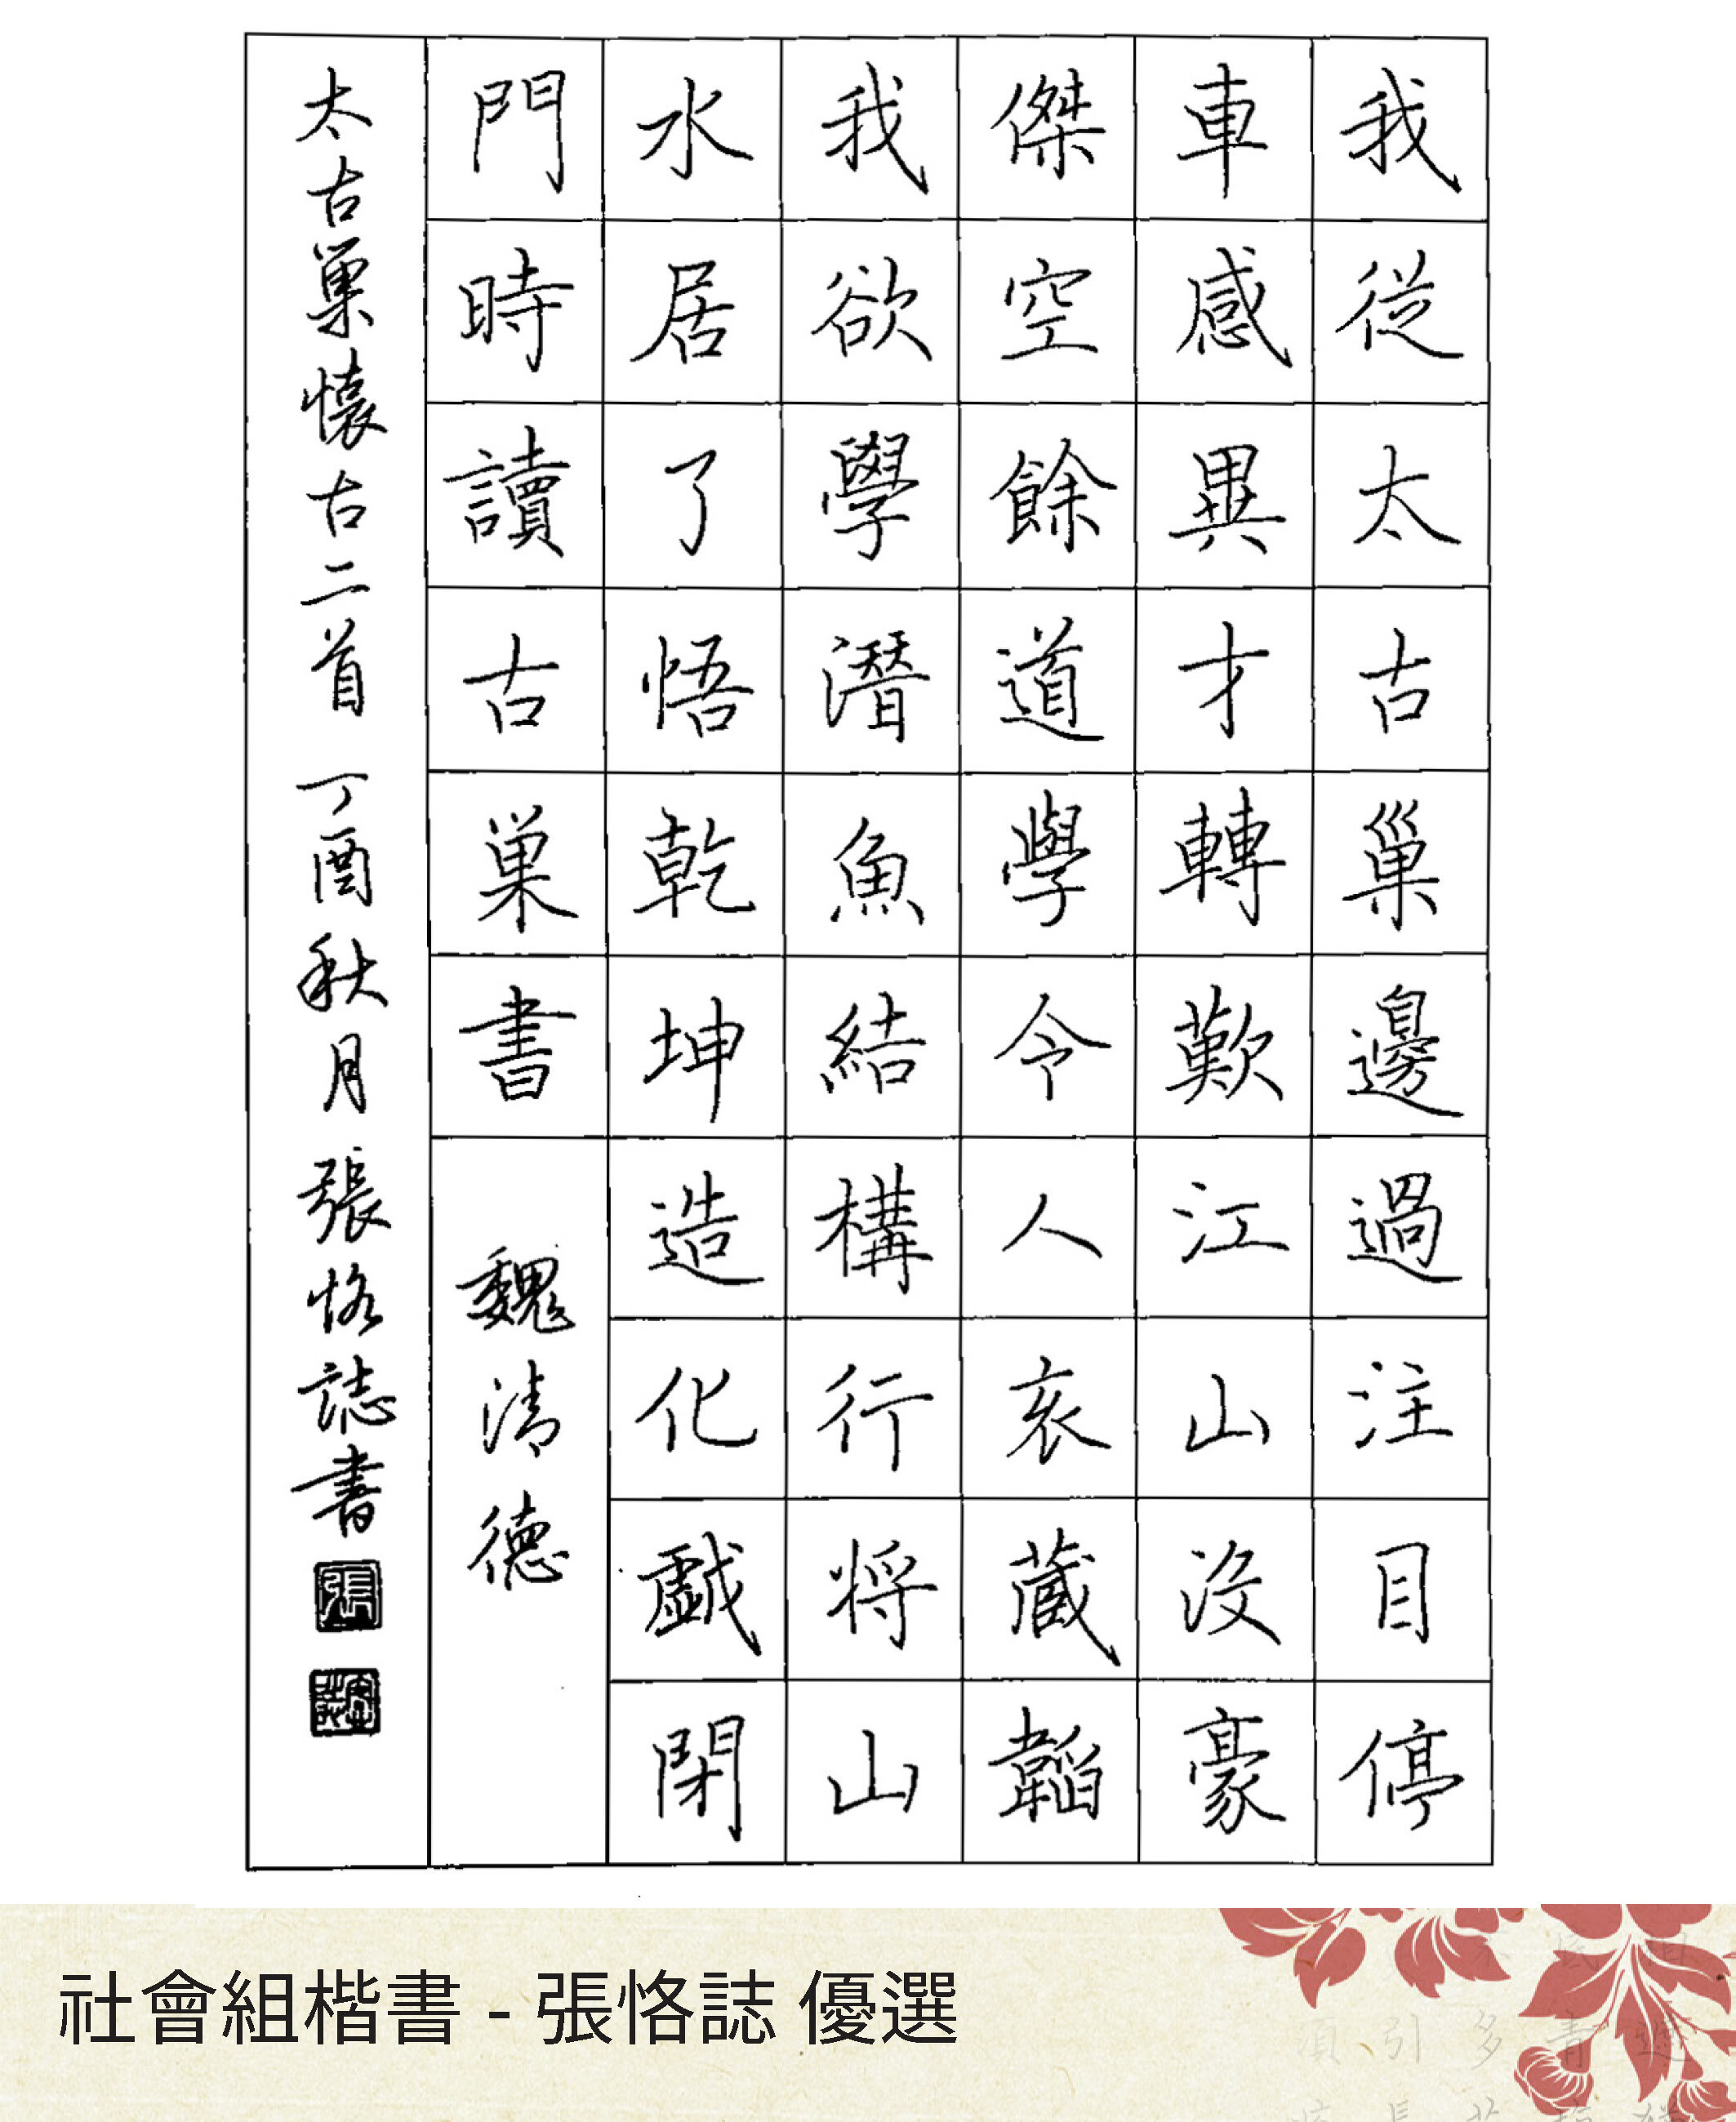 我從太古巢邊過注目停
車感異才轉歎江山沒豪
傑空餘道學令人哀藏韜
我欲學潛魚結構行將山
水居了悟乾坤造化戲閉
門時讀古巢書
魏清德
太古巢懷古二首 丁酉秋月 張恪誌書
社會組楷書 - 張恪誌 優選